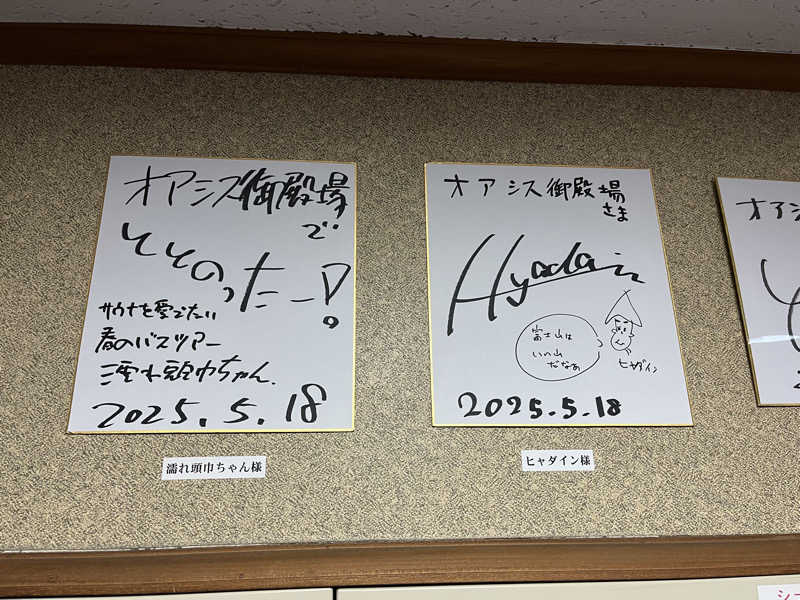 オアシス御殿場
で
ととのったー!。
サウナを愛でたい
春のバスツアー
濡れ頭巾ちゃん.
2025.5.18
濡れ頭巾ちゃん様
オアシス御殿場
さま
Hyadain
富士山は
いい山
だなぁ
ヒャダイン
2025.5.18
ヒャダイン様
オアシ